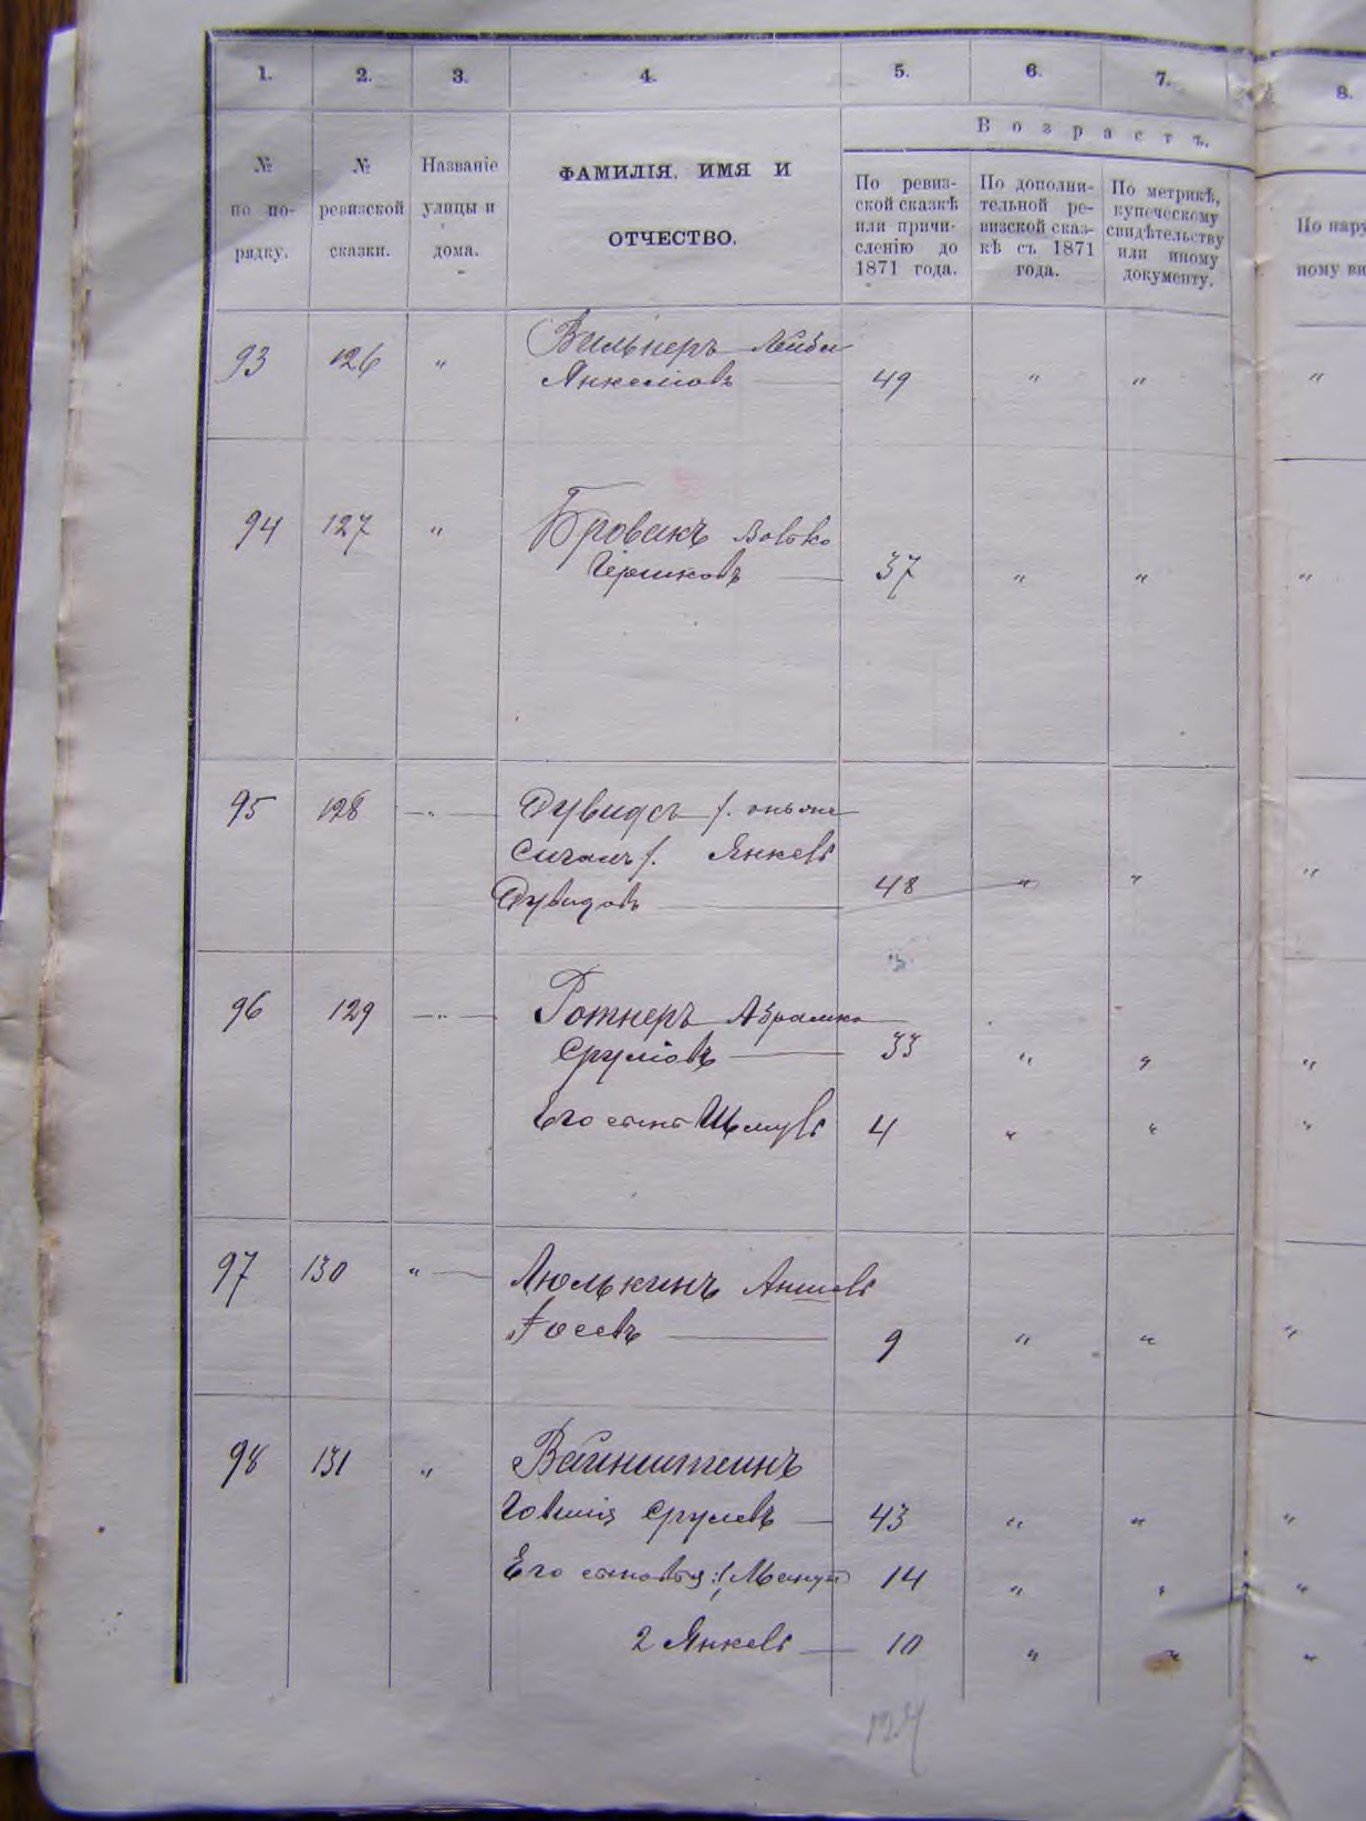 1. 2. 3. 4. 5. 6. 7. 8.
Возрастъ.
№ по порядку.
№ ревизской сказки.
Названіе улицы и дома.
ФАМИЛІЯ, ИМЯ И
ОТЧЕСТВО.
По ревиз-
ской сказкѣ
или причи-
сленію до
1871 года.
По дополни-
тельной ре-
визской сказ-
кѣ съ 1871
года.
По метрикѣ,
купеческому
свидѣтельству
или иному
документу.
По нару
ному ви
93 126 " Вильнеръ Лейба
Янкеліовъ 49 " " "
94 127 " Бровакъ Волько
Гершковъ 37 " " "
95 128 -"- Дувидъ
Янкель
Дувидовъ 48 " " "
96 129 -"- Ротнеръ Абрамко
Сруліовъ 33 " " "
Его сынъ Шмуль 4 " " "
97 130 " Люлькинъ Аншель
Іосевъ 9 " " "
98 131 " Вайнштейнъ
Говшія Срулевъ 43 " " "
Его сыновья: 1 14 " " "
2 Янкель 10 " " "